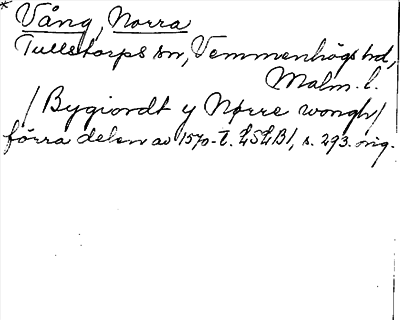 * Vång, Norra
Tullstorps sn, Vemmenhögs hd,
Malm. l.
/ Bygiordt y Nørre wongh /
förra delen av 1570-t. LSLB1, s. 293. orig.